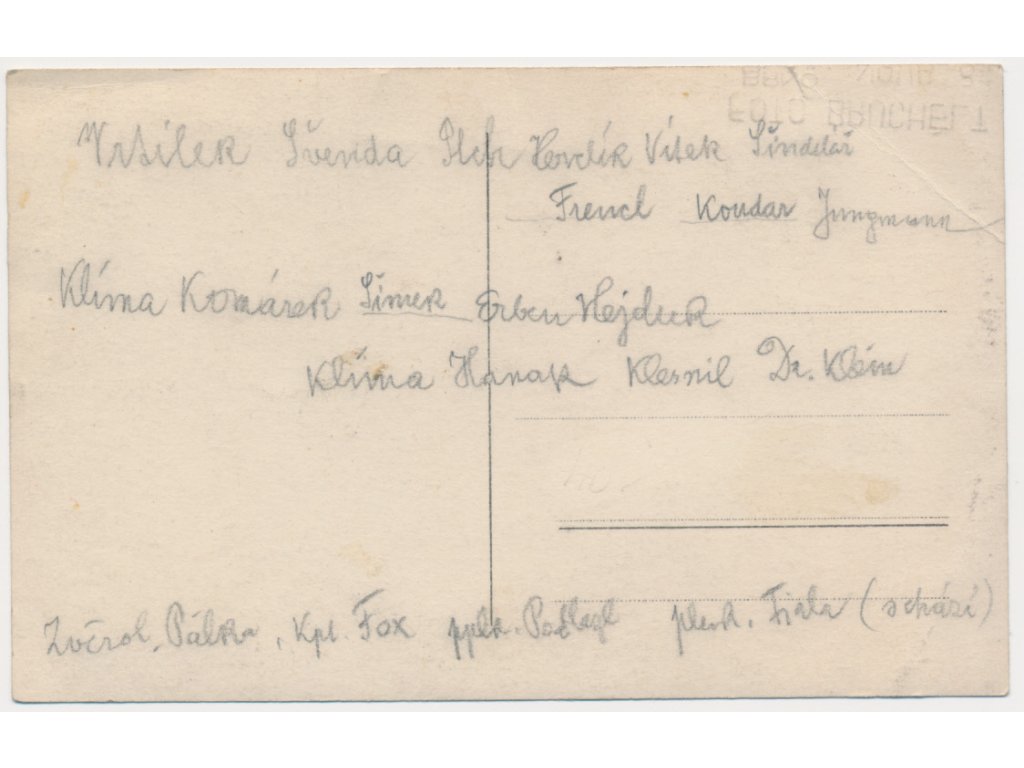 FOTO BRUCHELT
Vrtílek Švenda Plch Hovdík Vítek Šindelář
Frencl Koudar Jungmann
Klíma Komárek Šimek Erben Hejduk
Klíma Hanak Klesnil Dr. Klein
Zvěrol. Pálka, Kpt. Fox pplk. pluk. Fiala (schází)